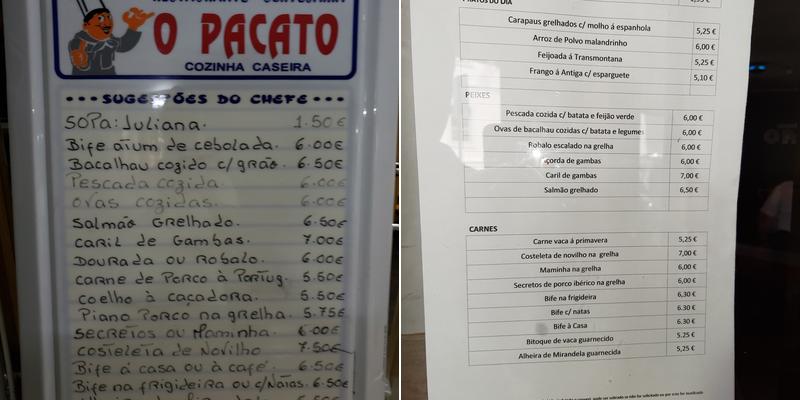 O PACATO
COZINHA CASEIRA
SUGESTÕES DO CHEFE
SOPA: Juliana. 1.50€
Bife atum de cebolada. 6.00€
Bacalhau cozido c/grão. 6.50€
Pescada cozida. 6.00€
Ovas cozidas. 6.00€
Salmão Grelhado. 6.50€
Caril de Gambas. 7.00€
Dourada ou Robalo. 6.00€
Carne de Porco à Portug. 5.50€
coelho à caçadora. 5.50€
Piano Porco na grelha. 5.75€
Secretos ou Maminha. 6.00€
Costeleta de Novilho 7.50€
Bife á casa ou à café. 6.50€
Bife na frigideira ou c/Natas. 6.50€
PRATOS DO DIA
Carapaus grelhados c/ molho á espanhola 5,25 €
Arroz de Polvo malandrinho 6,00 €
Feijoada á Transmontana 5,25 €
Frango á Antiga c/ esparguete 5,10 €
PEIXES
Pescada cozida c/ batata e feijão verde 6,00 €
Ovas de bacalhau cozidas c/ batata e legumes 6,00 €
Robalo escalado na grelha 6,00 €
Açorda de gambas 6,00 €
Caril de gambas 7,00 €
Salmão grelhado 6,50 €
CARNES
Carne vaca á primavera 5,25 €
Costeleta de novilho na grelha 7,00 €
Maminha na grelha 6,00 €
Secretos de porco ibérico na grelha 6,00 €
Bife na frigideira 6,30 €
Bife c/ natas 6.30 €
Bife à Casa 6.30 €
Bitoque de vaca guarnecido 5.25 €
Alheira de Mirandela guarnecida 5,25 €